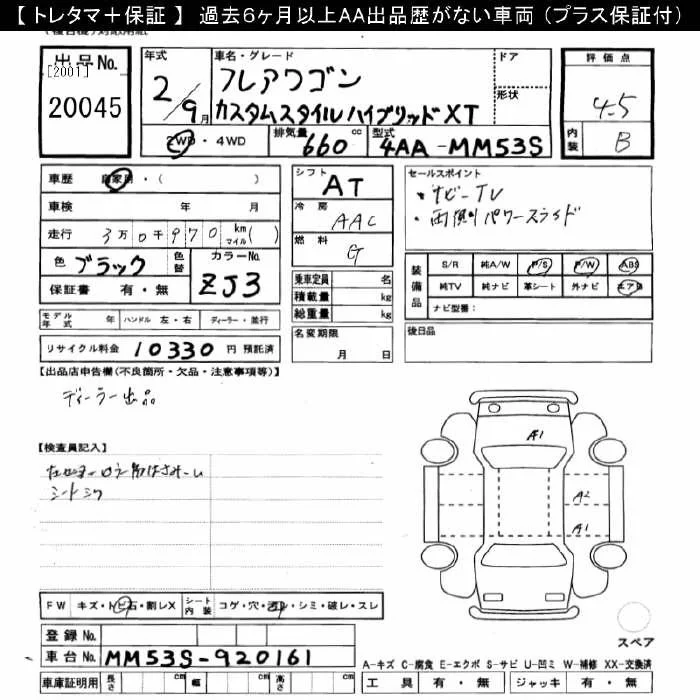 【 トレタマ＋保証 】 過去６ヶ月以上AA出品歴がない車両 （プラス保証付）
出品No. [2001] 20045
年式 2/9月
車名・グレード フレアワゴン カスタムスタイルハイブリッドXT
ドア 形状
2WD・4WD 排気量 660 cc 型式 4AA-MM53S
評価点 4.5
内装 B
車歴 自家用・( )
車検 年 月
走行 3万0千970 km マイル( )
色 ブラック 色替 カラーNo. ZJ3
保証書 有・無
モデル年式 年 ハンドル 左・右 ディーラー・並行
リサイクル料金 10330 円 預託済
シフト AT
冷房 AAC
燃料 G
乗車定員 名
積載量 kg
総重量 kg
名変期限 月 日
セールスポイント
・ナビーTV
・両側パワースライド
装備品 S/R 純A/W P/S P/W ABS
純TV 純ナビ 革シート 外ナビ エアB
ナビ型番：
後日品
【出品店申告欄(不良箇所・欠品・注意事項等)】
ディーラー出品
【検査員記入】
シートシワ
A1
A2
A1
FW キズ・トビ石・割レX シート内装 コゲ・穴・汚レ・シミ・破レ・スレ
登録No.
車台No. MM53S-920161
車庫証明用 長さ cm 幅 cm 高さ cm
スペア
A-キズ C-腐食 E-エクボ S-サビ U-凹ミ W-補修 XX-交換済
工具 有・無 ジャッキ 有・無